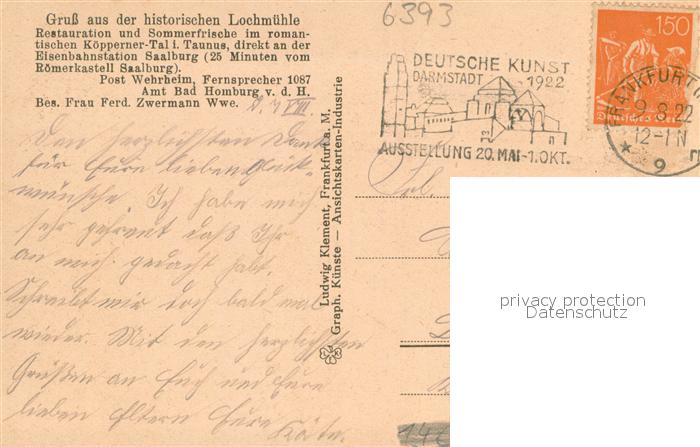 6393
Gruß aus der historischen Lochmühle
Restauration und Sommerfrische im roman-
tischen Köpperner-Tal i. Taunus, direkt an der
Eisenbahnstation Saalburg (25 Minuten vom
Römerkastell Saalburg).
Post Wehrheim, Fernsprecher 1087
Amt Bad Homburg v. d. H.
Bes. Frau Ferd. Zwermann Wwe.
DEUTSCHE KUNST
DARMSTADT 1922
AUSSTELLUNG 20. MAI-1.OKT.
150
Deutsches Reich
FRANKFURT
9.8.22
12-1 N
9
Den herzlichsten Dank
für Eure lieben Glück-
wünsche. Ich habe mich
sehr gefreut daß Ihr
an mich gedacht habt.
Schreibt mir doch bald mal
wieder. Mit den herzlichsten
Grüßen an Euch und Eure
lieben Eltern Eure
Käte.
Ludwig Klement, Frankfurt a. M.
Graph. Künste — Ansichtskarten-Industrie
privacy protection
Datenschutz